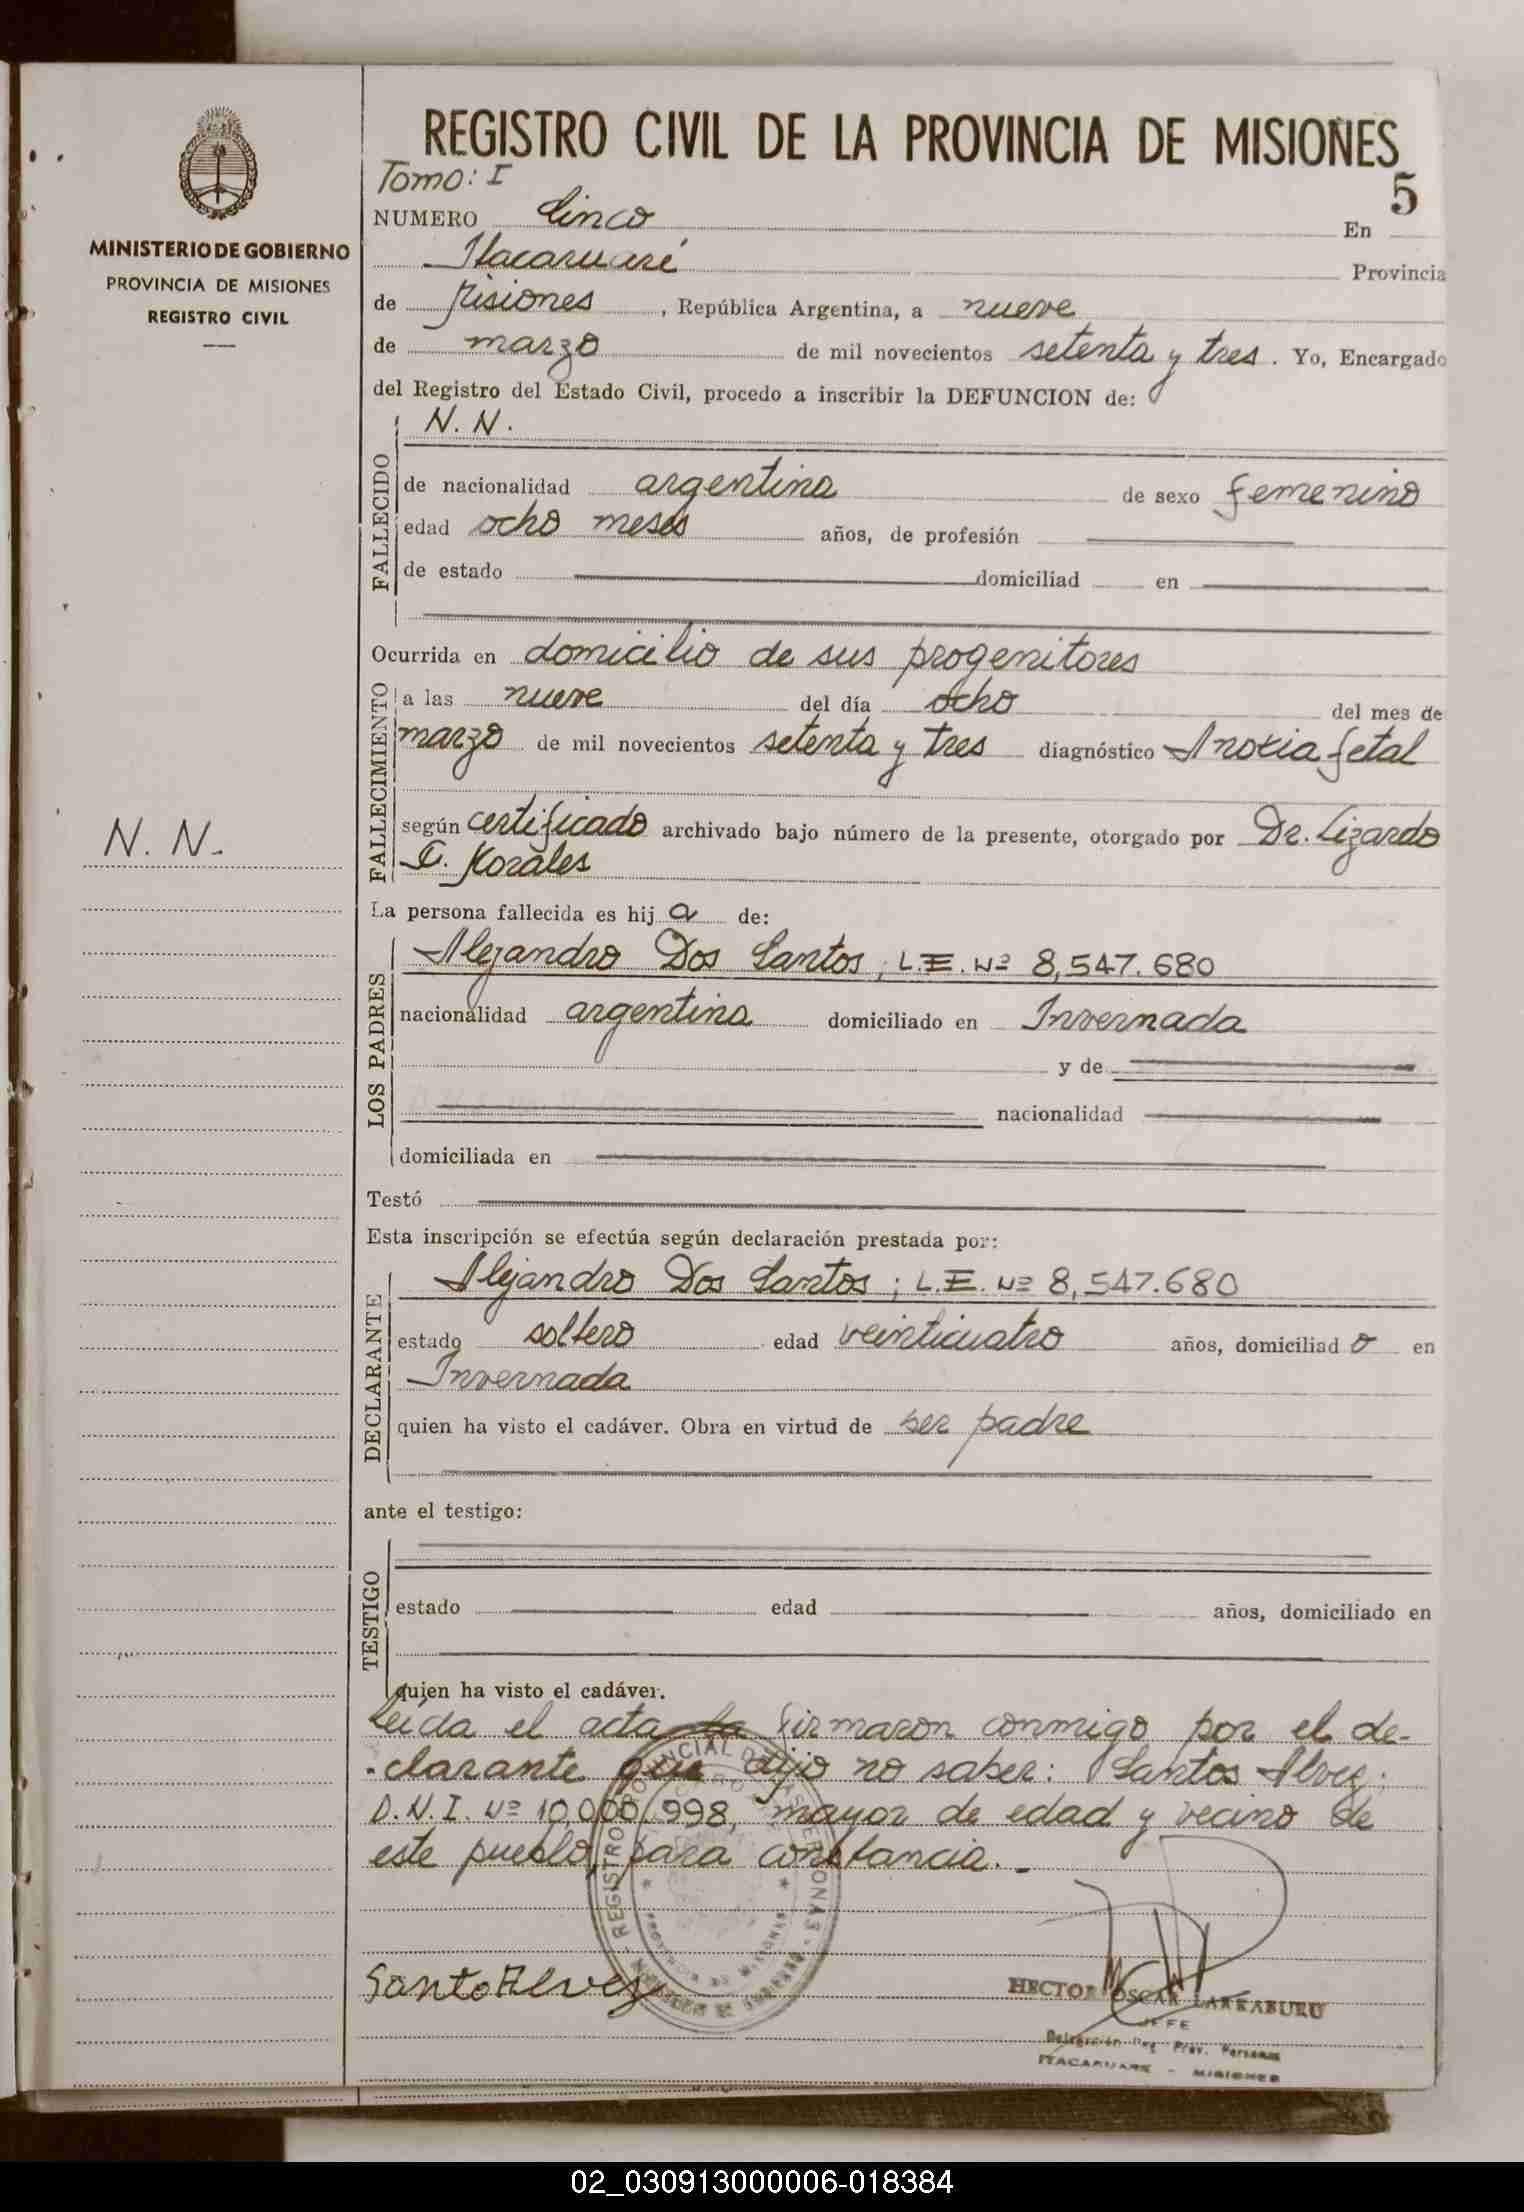 REGISTRO CIVIL DE LA PROVINCIA DE MISIONES
MINISTERIO DE GOBIERNO
PROVINCIA DE MISIONES
REGISTRO CIVIL
N. N.
Tomo: I
5
NUMERO Cinco En
Itacaruaré Provincia
de Misiones, República Argentina, a nueve
de marzo de mil novecientos setenta y tres. Yo, Encargado
del Registro del Estado Civil, procedo a inscribir la DEFUNCION de:
FALLECIDO
N. N.
de nacionalidad argentina de sexo femenino
edad ocho meses años, de profesión
de estado domiciliad en
Ocurrida en domicilio de sus progenitores
FALLECIMIENTO
a las nueve del día ocho del mes de
marzo de mil novecientos setenta y tres diagnóstico Anoxia fetal
según certificado archivado bajo número de la presente, otorgado por Dr. Lizardo
C. Morales
La persona fallecida es hij a de:
LOS PADRES
Alejandro Dos Santos; L.E. Nº 8,547.680
nacionalidad argentina domiciliado en Invernada
y de
nacionalidad
domiciliada en
Testó
Esta inscripción se efectúa según declaración prestada por:
DECLARANTE
Alejandro Dos Santos; L.E. Nº 8,547.680
estado soltero edad veinticuatro años, domiciliad o en
Invernada
quien ha visto el cadáver. Obra en virtud de ser padre
ante el testigo:
TESTIGO
estado edad años, domiciliado en
quien ha visto el cadáver.
Leída el acta la firmaron conmigo por el de-
clarante que dijo no saber: Santos Alvez;
D.N.I. Nº 10,000,998, mayor de edad y vecino de
este pueblo, para constancia.-
REGISTRO PROVINCIAL DE LAS PERSONAS
PROVINCIA DE MISIONES
Santo Alvez
HECTOR OSCAR LARRABURU
JEFE
Delegación Reg. Prov. Personas
ITACARUARE - MISIONES
02_030913000006-018384